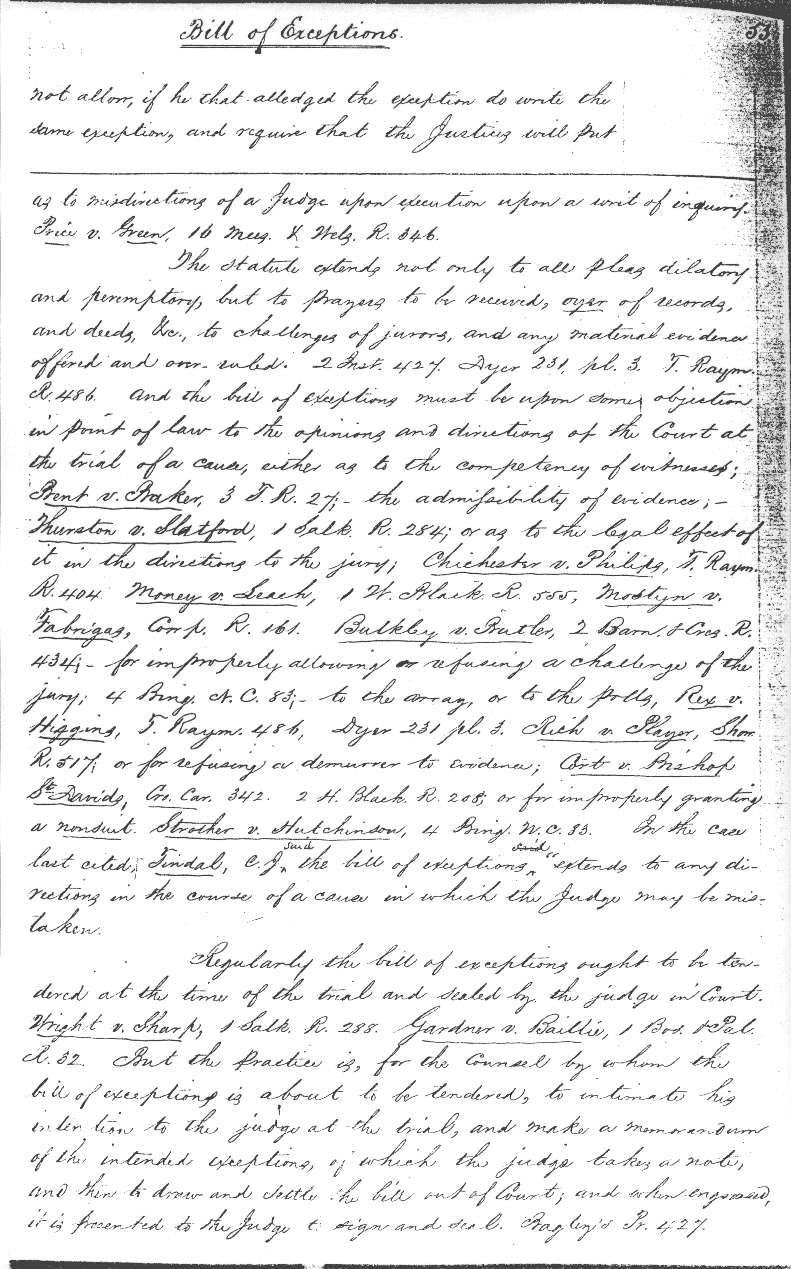 Bill of Exceptions.
53
not allow, if he that alledged the exception do write the
same exception, and require that the Justices will put
as to misdirections of a Judge upon execution upon a writ of inquiry.
Price v. Green, 16 Mees. & Wels. R. 346.
The statute extends not only to all pleas dilatory
and peremptory, but to prayers to be received, oyer of records,
and deeds, &c., to challenges of jurors, and any material evidence
offered and over-ruled. 2 Inst. 427. Dyer 231, pl. 3. T. Raym.
R. 486. And the bill of exceptions must be upon some objection
in point of law to the opinions and directions of the Court at
the trial of a cause, either as to the competency of witnesses;
Bent v. Baker, 3 T. R. 27;- the admissibility of evidence;-
Thurston v. Slatford, 1 Salk. R. 284; or as to the legal effect of
it in the directions to the jury; Chichester v. Philips, T. Raym.
R. 404. Money v. Leach, 1 W. Black. R. 555, Mostyn v.
Fabrigas, Comp. R. 161. Bulkley v. Butler, 2 Barn. & Cres. R.
434;- for improperly allowing or refusing a challenge of the
jury; 4 Bing. N. C. 83;- to the array, or to the polls, Rex v.
Higgins, T. Raym. 486, Dyer 231 pl. 3. Rich v. Player, Show.
R. 517; or for refusing a demurrer to evidence; Cort v. Bishop
St Davids, Cro. Car. 342. 2 H. Black. R. 208; or for improperly granting
a nonsuit. Strother v. Hutchinson, 4 Bing. N. C. 83. In the case
last cited, Tindal, C. J. said the bill of exceptions said "extends to any di-
rections in the course of a cause in which the Judge may be mis-
taken.
Regularly the bill of exceptions ought to be ten-
dered at the time of the trial and sealed by the judge in Court.
Wright v. Sharp, 1 Salk. R. 288. Gardner v. Baillie, 1 Bos. & Pul.
R. 32. But the practice is, for the Counsel by whom the
bill of exceptions is about to be tendered, to intimate his
intention to the judge at the trial, and make a memorandum
of the intended exceptions, of which the judge takes a note,
and then to draw and settle the bill out of Court; and when engrossed,
it is presented to the Judge to sign and seal. Bagley's Pr. 427.